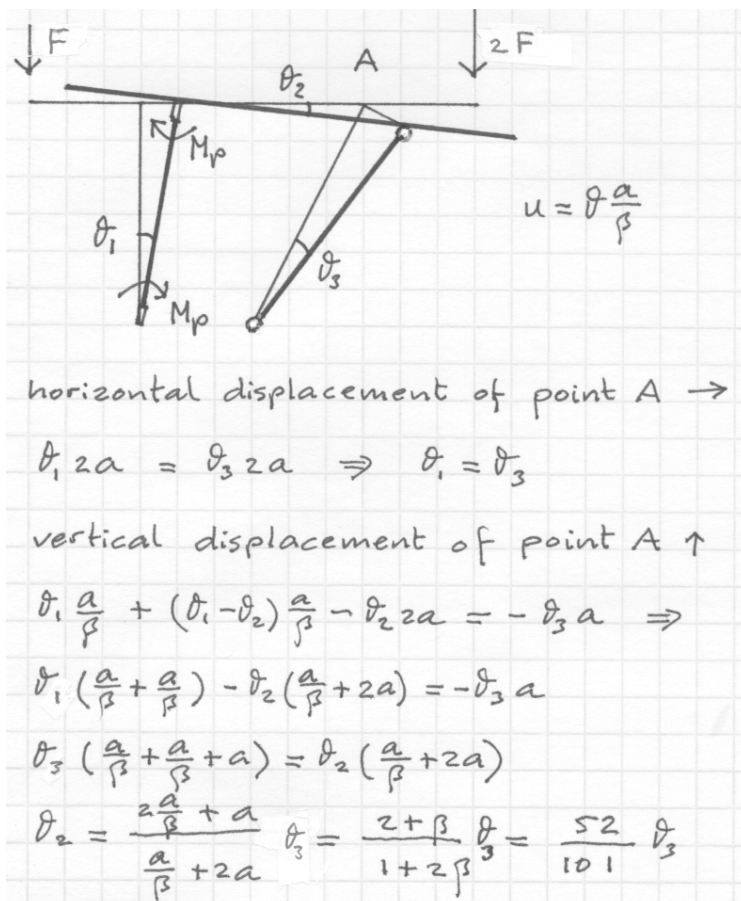 F
2F
A
ϑ₂
Mp
ϑ₁
u = ϑ a/β
ϑ₃
Mp
horizontal displacement of point A →
ϑ₁ 2a = ϑ₃ 2a ⇒ ϑ₁ = ϑ₃
vertical displacement of point A ↑
ϑ₁ a/β + (ϑ₁-ϑ₂) a/β - ϑ₂ 2a = - ϑ₃ a ⇒
ϑ₁ (a/β + a/β) - ϑ₂ (a/β + 2a) = -ϑ₃ a
ϑ₃ (a/β + a/β + a) = ϑ₂ (a/β + 2a)
ϑ₂ = (2 a/β + a)/(a/β + 2a) ϑ₃ = (2+β)/(1+2β) ϑ₃ = 52/101 ϑ₃